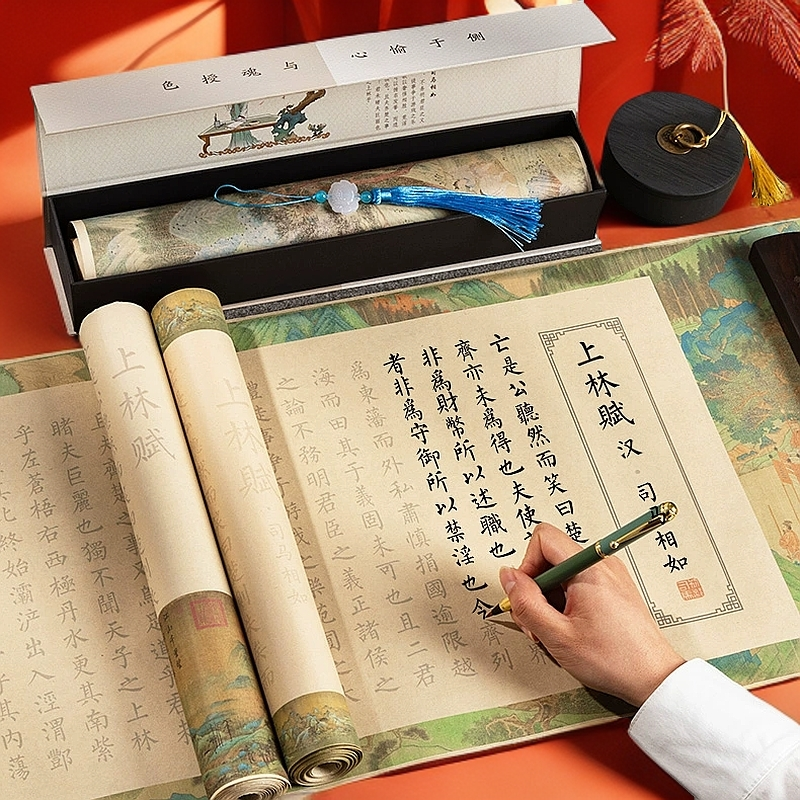 色授魂与 心愉于侧
上林赋 汉·司马相如
亡是公聽然而笑曰楚
齊亦未為得也夫使
非為財幣所以述職也
界
者非為守御所以禁淫也今齊列
為東藩而外私肅慎捐國逾限越
海而田其于義固未可也且二君
之論不務明君臣之義正諸侯之
上林赋 司马相如
上林赋
睹夫巨麗也獨不聞天子之上林
乎左蒼梧右西極丹水更其南紫
北終始灞滻出入涇渭酆
其内蕩